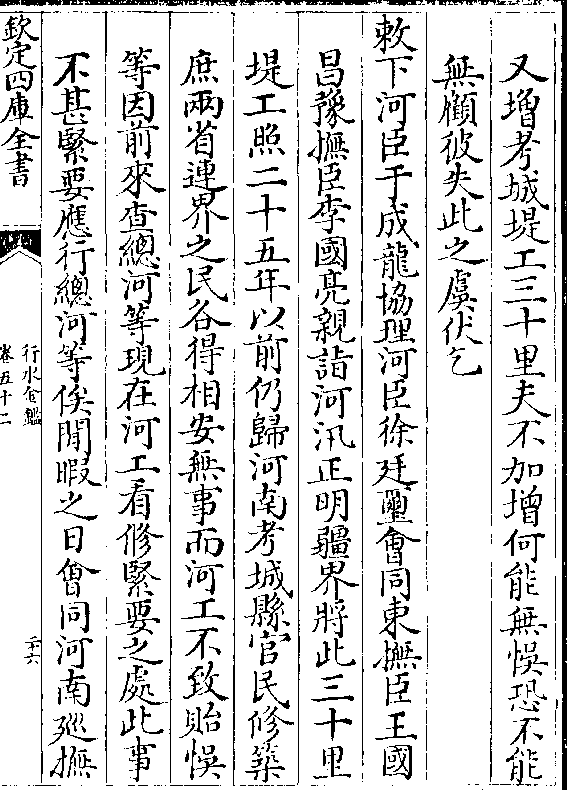 又增考城堤工三十里夫不加增何能無悞恐不能
無顧彼失此之虞伏乞
敕下河臣于成龍協理河臣徐廷璽會同東撫臣王國
昌豫撫臣李國亮親詣河汛正明疆界將此三十里
堤工照二十五年以前仍歸河南考城縣官民修築
庶兩省連界之民各得相安無事而河工不致貽悞
等因前來查總河等現在河工看修緊要之處此事
不甚緊要應行總河等俟閒暇之日會同河南廵撫
欽定四庫全書
行水金鑑
卷五十二
二十六